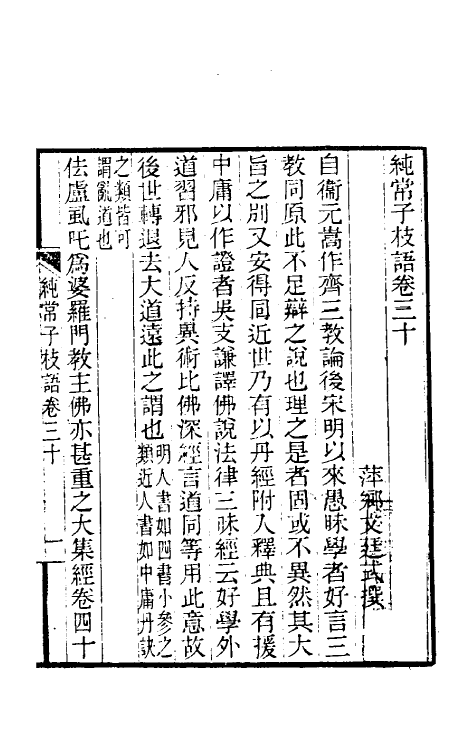 純常子枝語卷三十
萍鄉文廷式撰
自衞元嵩作齊三教論後宋明以來愚昧學者好言三
教同原此不足辯之說也理之是者固或不異然其大
旨之別又安得同近世乃有以丹經附入釋典且有援
中庸以作證者吳支謙譯佛說法律三昧經云好學外
道習邪見人反持異術比佛深經言道同等用此意故
後世轉退去大道遠此之謂也明人書如四書小參之
類近人書如中庸丹訣
之類皆可
謂亂道也
佉盧虱吒爲婆羅門教主佛亦甚重之大集經卷四十
純常子枝語卷三十
一